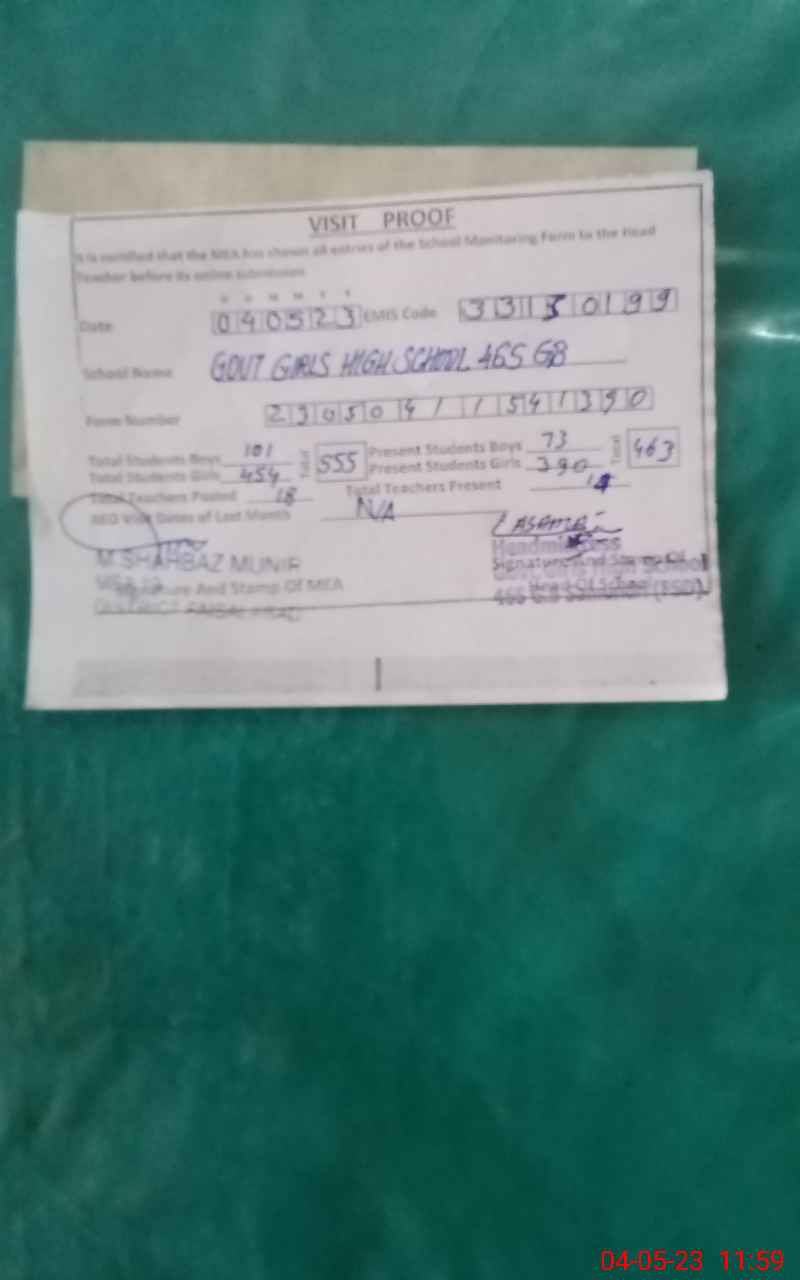 VISIT PROOF
It is certified that the MEA has shown all entries of the School Monitoring Form to the Head
Teacher before its online submission
D D M M Y Y
Date 040523 EMIS Code 33130199
School Name GOVT GIRLS HIGH SCHOOL 465 GB
Form Number 23050411541390
Total Students Boys 101 Total 555 Present Students Boys 73 Total 463
Total Students Girls 454 Present Students Girls 390
Total Teachers Posted 18 Total Teachers Present
AEO Visit Dates of Last Month N/A
M.SHAHBAZ MUNIR
Signature And Stamp Of MEA
DISTRICT FAISALABAD
Headmistress
Signature And Stamp Of
Head Of School
04-05-23 11:59